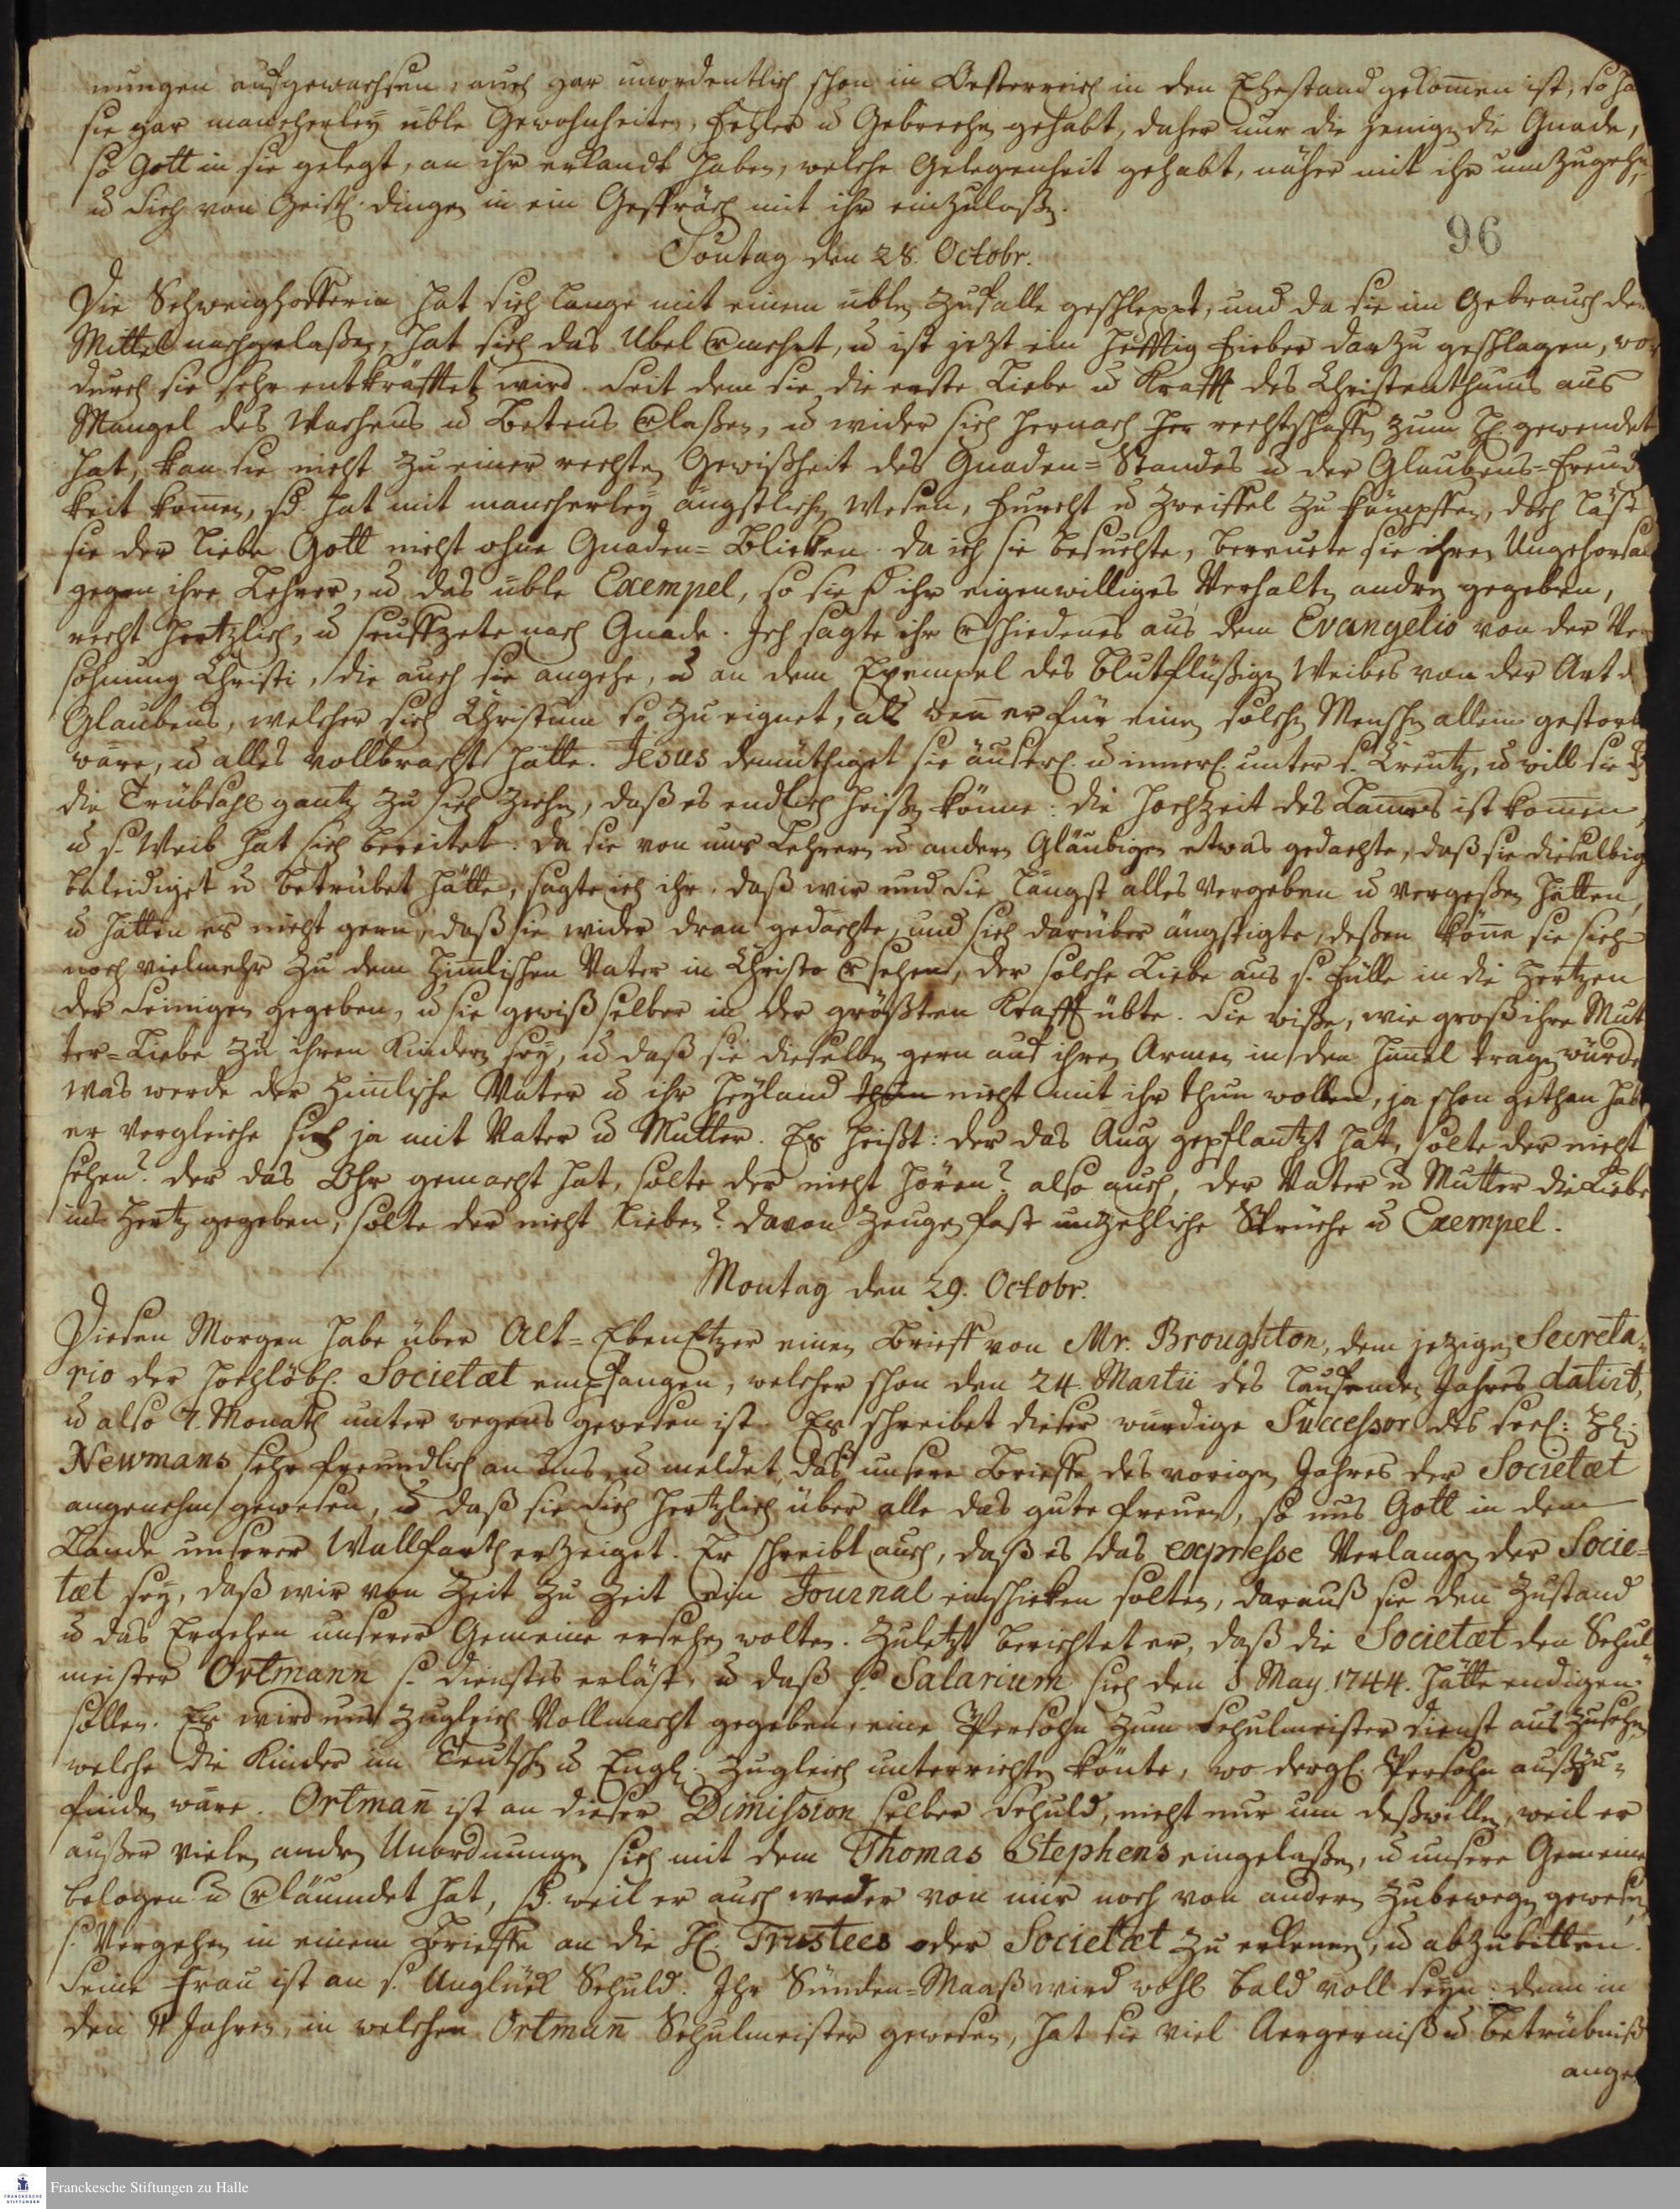 nungen aufgewachsen, auch gar unordentlich schon in Oesterreich in den Ehestand gekom̅en ist, so ha
sie gar mancherley üble Gewohnheiten, Fehler u Gebrechen gehabt, daher nur die jenigen die Gnade,
so Gott in sie gelegt, an ihr erkandt haben, welche Gelegenheit gehabt, näher mit ihr umzugehen,
u sich von Geistl. dingen in ein Gespräch mit ihr einzulaßen.
96
Sontag den 28. Octobr.
Die Schweighofferin hat sich lange mit einem üblen Zufalle geschleppt, und da sie im Gebrauch der
Mittel nachgelaßen, hat sich das Ubel vermehrt, u ist jezt ein hefftig Fieber darzu geschlagen, wo
durch sie sehr entkräfftet wird. Seit dem sie die erste Liebe u Krafft des Christenthums aus
Mangel des Wachens u Betens verlaßen, u wider sich hernach her rechtschaffen zum H. gewendet
hat, kan sie nicht zu einer rechten Gewißheit des Gnaden=Standes u der Glaubens=Freud
keit kom̅en, sd. hat mit mancherley ängstlichen Wesen, Furcht u Zweiffel zu kämpffen, doch läst
sie der liebe Gott nicht ohne Gnaden=Blicken. Da ich sie besuchte, bereuete sie ihren Ungehorsa
gegen ihre Lehrer, u das üble Exempel, so sie d ihr eigenwilliges Verhalten andren gegeben,
recht hertzlich, u seuffzete nach Gnade. Ich sagte ihr verschiedenes aus dem Evangelio von der Ver
söhnung Christi, die auch sie angehe, u an dem Exempel des blutflüßigen Weibes von der Art d
Glaubens, welcher sich Christum so zu eignet, als wen̅ er für einen solchen Menschen allein gestorb
wäre, u alles vollbracht hätte. Jesus demüthiget sie äuserl. u innerl. unter s. Creutz, u will sie d
die Trübsahl gantz zu sich ziehen, daß es endlich heißen könne: die Hochzeit des Lam̅es ist kom̅en,
u s. Weib hat sich bereitet. Da sie von uns Lehrern u andern Gläubigen etwas gedachte, daß sie dieselbig
beleidiget u betrübet hätte, sagte ich ihr, daß wir und sie längst alles vergeben u vergeßen hätten,
u hätten es nicht gern, daß sie wider dran gedachte, und sich darüber ängstigte, deßen kön̅e sie sich
noch vielmehr zu dem Him̅lischen Vater in Christo versehen, der solche Liebe aus s. Fülle in die Hertzen
der Seinigen gegeben, u sie gewiß selber in der größten Krafft übte. Sie wiße, wie groß ihre Mut
ter=Liebe zu ihren Kindern sey, u daß sie dieselben gern auf ihren Armen in den Him̅el tragen würde,
was werde der Him̅lische Vater u ihr Heyland thun nicht mit ihr thun wollen, ja schon gethan hab
er vergleiche sich ja mit Vater u Mutter. Es heißt: der das Aug gepflantzt hat, solte der nicht
sehen? der das Ohr gemacht hat, solte der nicht hören? also auch, der Vater u Mutter die Liebe
ins Hertz gegeben, solte der nicht lieben? davon zeugen fast unzehliche Sprüche u Exempel.
Montag den 29. Octobr.
Diesen Morgen habe über Alt=EbenEtzer einen Brieff von Mr. Broughton, dem jezigen Secreta-
rio der Hochlöbl. Societæt empfangen, welcher schon den 24. Martii des lauffenden Jahres datirt,
u also 7. Monath unter wegens gewesen ist. Es schreibet dieser würdige Successor des seel: H.
Newmans sehr freundlich an uns, u meldet, daß unsere Brieffe des vorigen Jahres der Societæt
angenehm gewesen, u daß sie sich hertzlich über alle das gute freuen, so uns Gott in dem
Lande unserer Wallfarth erzeiget. Er schreibt auch, daß es das expresse Verlangen der Socie=
tæt sey, daß wir von Zeit zu Zeit ein Journal einschicken solten, darauß sie den Zustand
u das Ergehen unserer Gemeine ersehen wolten. Zuletzt berichtet er, daß die Societæt den Schul
meister Ortmann s. dienstes erläst, u daß s. Salarium sich den 1 May. 1744. hätte endigen
sollen. Es wird uns zugleich Vollmacht gegeben, eine Persohn zum Schulmeister dienst aus zusehen,
welche die Kinder im Teutschen u Engl. zugleich unterrichten könte, wo dergl. Persohn auszu-
finden wäre. Ortman̅ ist an dieser Dimission selber Schuld, nicht nur um deßwillen, weil er
außer vielen andren Unordnungen sich mit dem Thomas Stephens eingelaßen, u unsere Gemeine
belogen u verläumdet hat, sd. weil er auch weder von mir noch von andern zubewegen gewesen,
s. Vergehen in einem Brieffe an die H. Trustees oder Societæt zu erkennen, u abzubitten.
Seine Frau ist an s. Unglück Schuld. Ihr Sünden=Maaß wird wohl bald voll seyn: denn in
den 11 Jahren, in welchen Ortman̅ Schulmeister gewesen, hat sie viel Aergerniß u Betrübniß
ange
Franckesche Stiftungen zu Halle